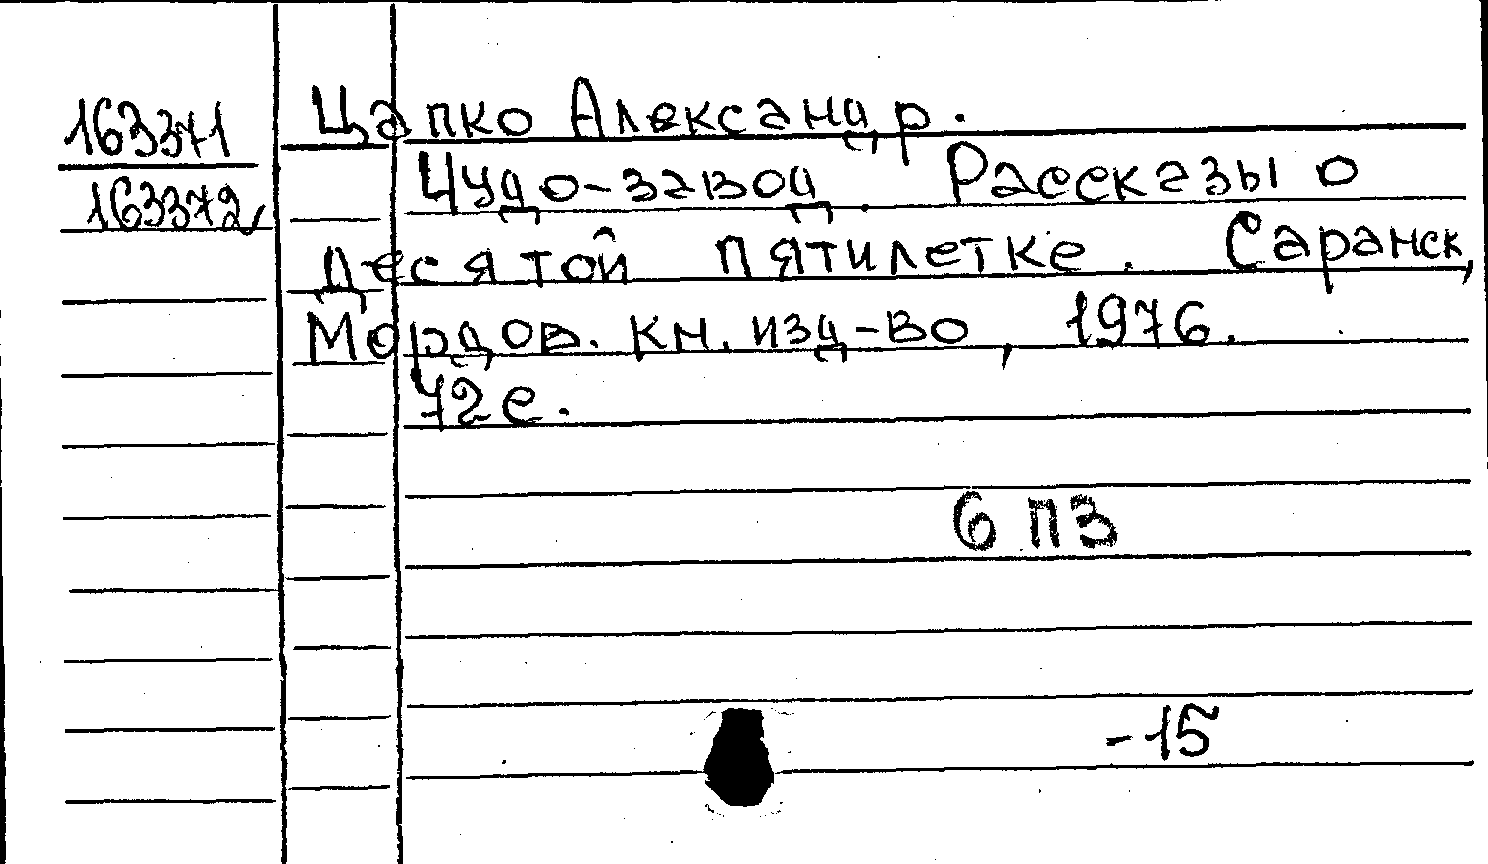 163371
163372
Цапко Александр.
Чудо-завод. Рассказы о
десятой пятилетке. Саранск,
Мордов. кн. изд-во, 1976.
72 с.
6 П3
-15